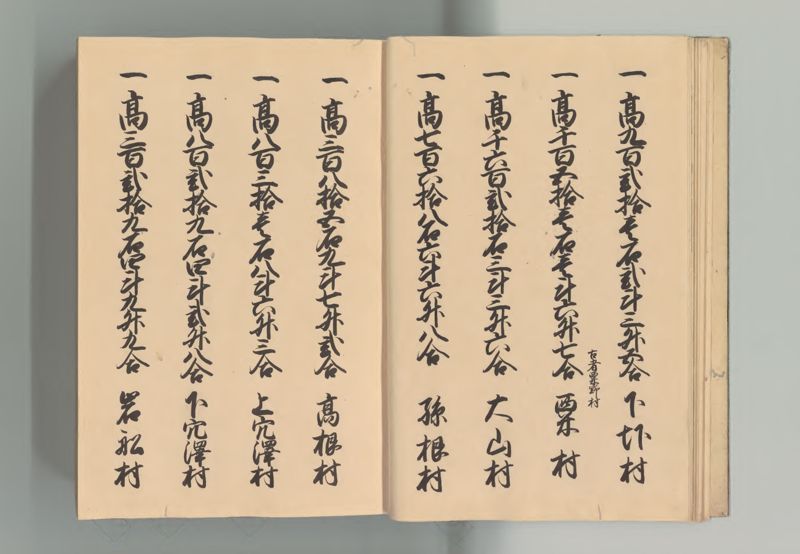 一高九百弐拾壱石弐斗三升五合 下圷村
一高千百五拾壱石壱斗六升七合 粟村
古者粟野村
一高千六百弐拾石三斗三升六合 大山村
一高七百六拾八石六斗六升八合 孫根村
一高三百八拾五石九斗七升弐合 高根村
一高八百三拾壱石八斗六升三合 上穴澤村
一高八百弐拾九石四斗弐升八合 下穴澤村
一高三百弐拾九石四斗九升九合 岩船村